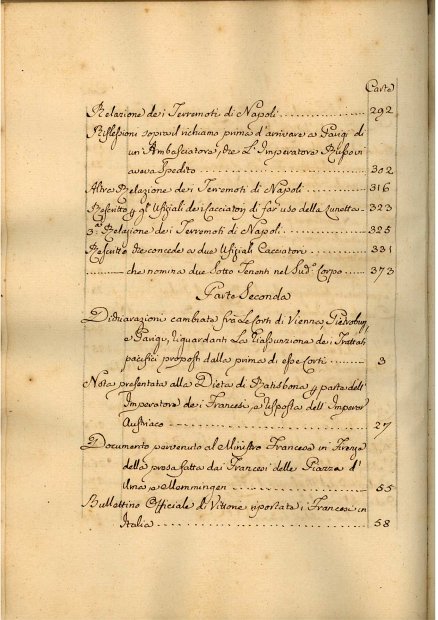 Carte
Relazione dei Terremoti di Napoli 292
Riflessioni sopra il richiamo, prima d'arrivare a Parigi di
un'Ambasciatore, che L'Imperatore Russo vi
aveva spedito 302
Altra Relazione dei Terremoti di Napoli 316
Rescritto p gl' Ufiziali dei Cacciatori di far uso della Lunetta 323
3ª Relazione dei Terremoti di Napoli 325
Rescritto che concede a due Ufiziali Cacciatori 331
che nomina due Sotto Tenenti nel Sud.º Corpo 373
Parte Seconda
Dichiarazioni cambiate fra le Corti di Vienna, Pietroburg,
e Parigi, riguardanti La riassunzione dei Trattati
pacifici proposti dalla prima di esse Corti 3
Nota presentata alla Dieta di Ratisbona p parte dell'
Imperatore dei Francesi, e risposta dell' Imper.
Austriaco 27
Documento pervenuto al Ministro Francese in Firenze
della presa fatta dai Francesi delle Piazze d'
Ulma e Memmingen 55
Bullettino Officiale di Vittorie riportate i Francesi in
Italia 58